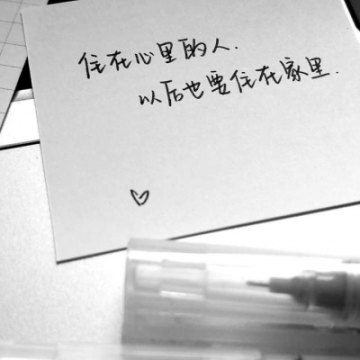 住在心里的人.
以后也要住在家里.